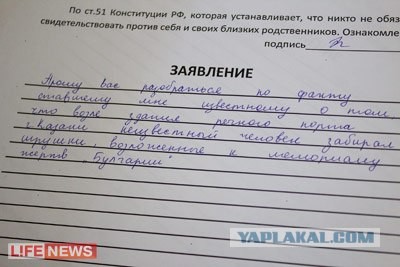 По ст.51 Конституции РФ, которая устанавливает, что никто не обяз
свидетельствовать против себя и своих близких родственников. Ознакомле
подпись
ЗАЯВЛЕНИЕ
Прошу вас разобраться по факту
ставшему мне известному о том,
что возле здания речного порта
г. Казани неизвестный человек забирал
игрушки, возложенные к мемориалу
жертв "Булгарии"
LIFENEWS
YAPLAKAL.COM